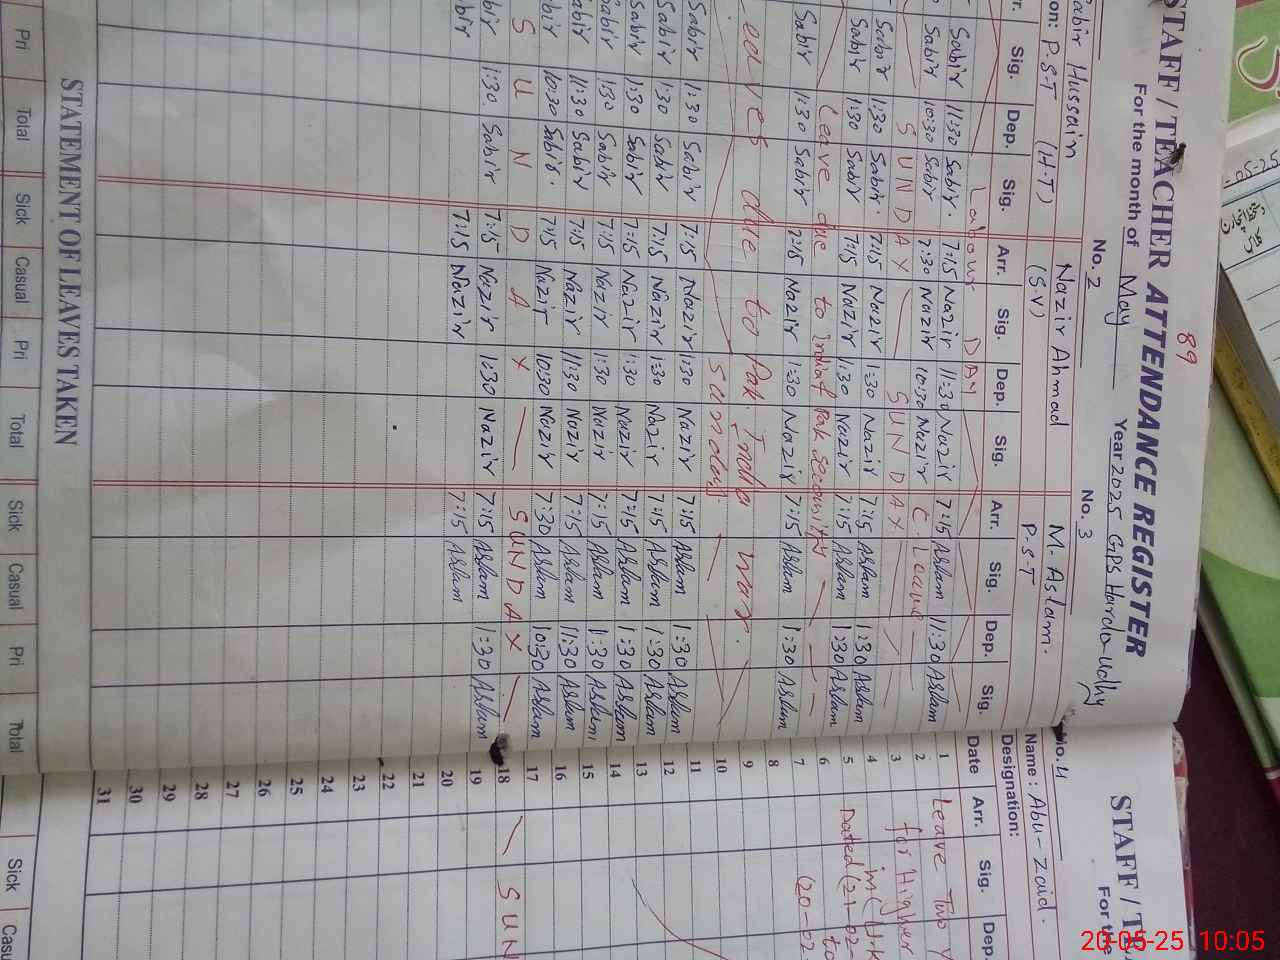 89
STAFF / TEACHER ATTENDANCE REGISTER
For the month of May Year 2025 GPS
No. 2 No. 3
Sabir Hussain Nazir Ahmad M. Aslam.
P.S.T (H.T) (S.V) P.S.T
Sig. Dep. Sig. Arr. Sig. Dep. Sig. Arr. Sig. Dep. Sig.
Labour DAY
Sabir 11:30 Sabir. 7:15 Nazir 11:30 Nazir 7:15 Aslam 11:30 Aslam
Sabir 10:30 Sabir 7:30 Nazir 10:30 Nazir C. Leave
SUNDAY SUNDAY
Sabir 1:30 Sabir. 7:15 Nazir 1:30 Nazir 7:15 Aslam 1:30 Aslam
Sabir 1:30 Sabir 7:15 Nazir 1:30 Nazir 7:15 Aslam 1:30 Aslam
Leave due to Pak security
Sabir 1:30 Sabir 7:15 Nazir 1:30 Nazir 7:15 Aslam 1:30 Aslam
Leaves due to Pak. India war.
Sabir 1:30 Sabir 7:15 Nazir 1:30 Nazir 7:15 Aslam 1:30 Aslam
Sabir 1:30 Sabir 7:15 Nazir 1:30 Nazir 7:15 Aslam 1:30 Aslam
Sabir 1:30 Sabir 7:15 Nazir 1:30 Nazir 7:15 Aslam 1:30 Aslam
Sabir 1:30 Sabir 7:15 Nazir 1:30 Nazir 7:15 Aslam 1:30 Aslam
Sabir 11:30 Sabir 7:15 Nazir 11:30 Nazir 7:15 Aslam 11:30 Aslam
Sabir 10:30 Sabir. 7:15 Nazir 10:30 Nazir 7:30 Aslam 10:30 Aslam
SUNDAY SUNDAY
Sabir 1:30. Sabir 7:15 Nazir 10:30 Nazir 7:15 Aslam 1:30 Aslam
Sabir 7:15 Nazir 7:15 Aslam
STATEMENT OF LEAVES TAKEN
Pri Total Sick Casual Pri Total Sick Casual Pri Total
STAFF / TEA
For the
No. 4
Name: Abu-Zaid.
Designation:
Date Arr. Sig. Dep.
1 Leave Two Y
2 for Higher
3 in
4 Dated (21-02- to
5
6
7 (20-02-
8
9
10
11
12
13
14
15
16
17
18 SUN
19
20
21
22
23
24
25
26
27
28
29
30
31
Sick Casu
20-05-25 10:05